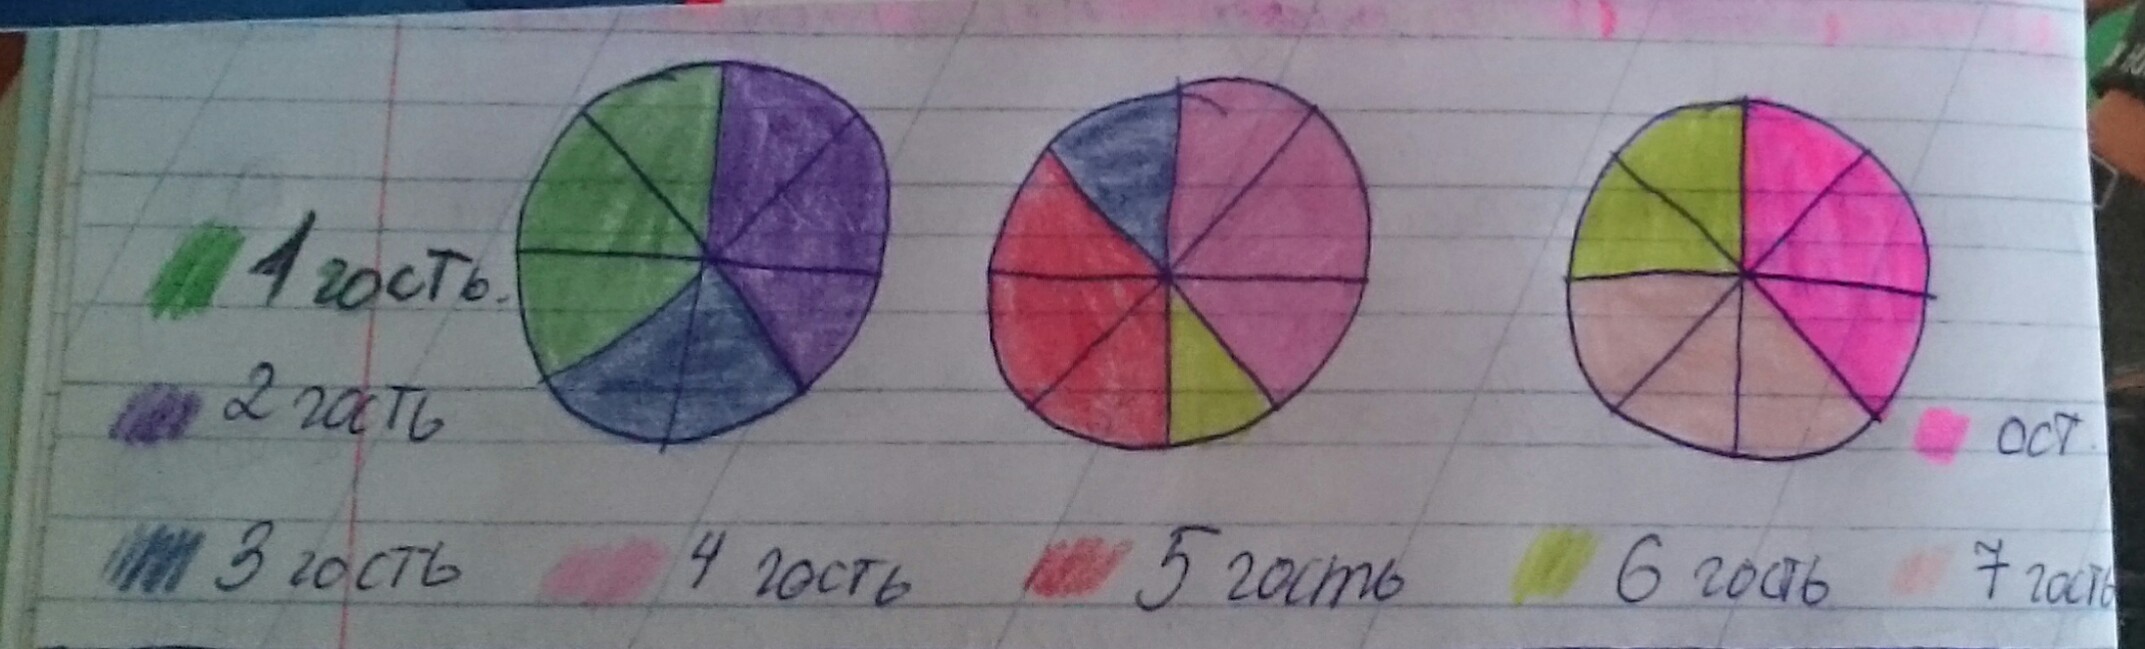 1 гость.
2 гость
ост.
3 гость 4 гость 5 гость 6 гость 7 гость